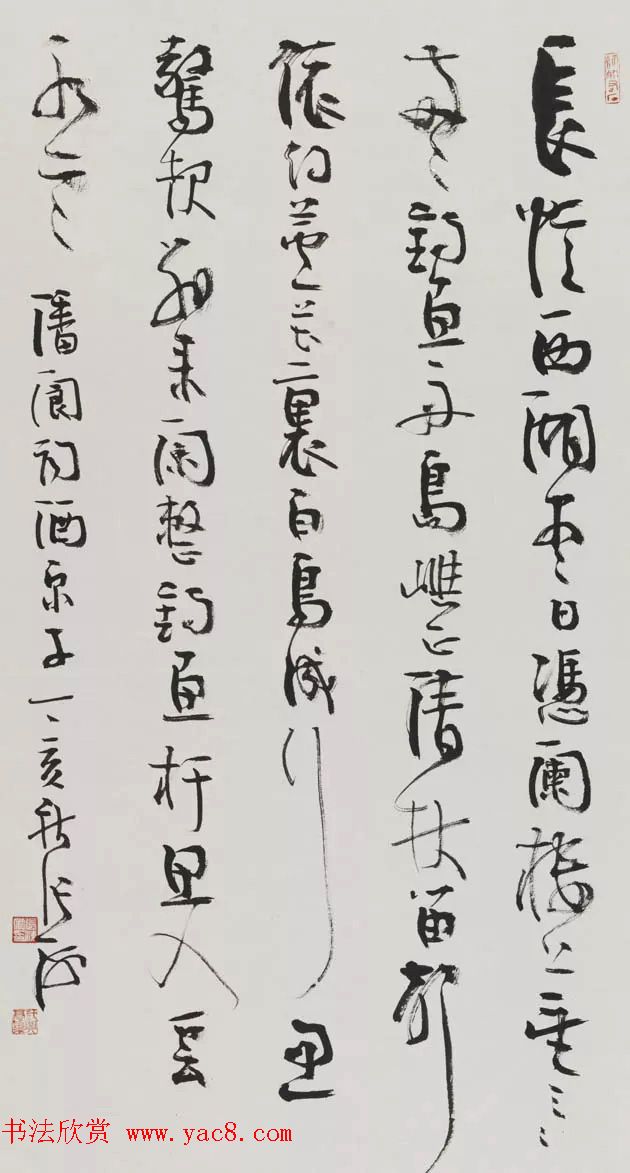 長憶西湖盡日憑闌樓上望三三
兩兩釣魚舟島嶼正清秋笛聲
依約蘆花裏白鳥成行忽
驚起別來閑整釣魚杆思入雲
水寒 潘閬詞酒泉子丁亥秋張海
书法欣赏 www.yac8.com